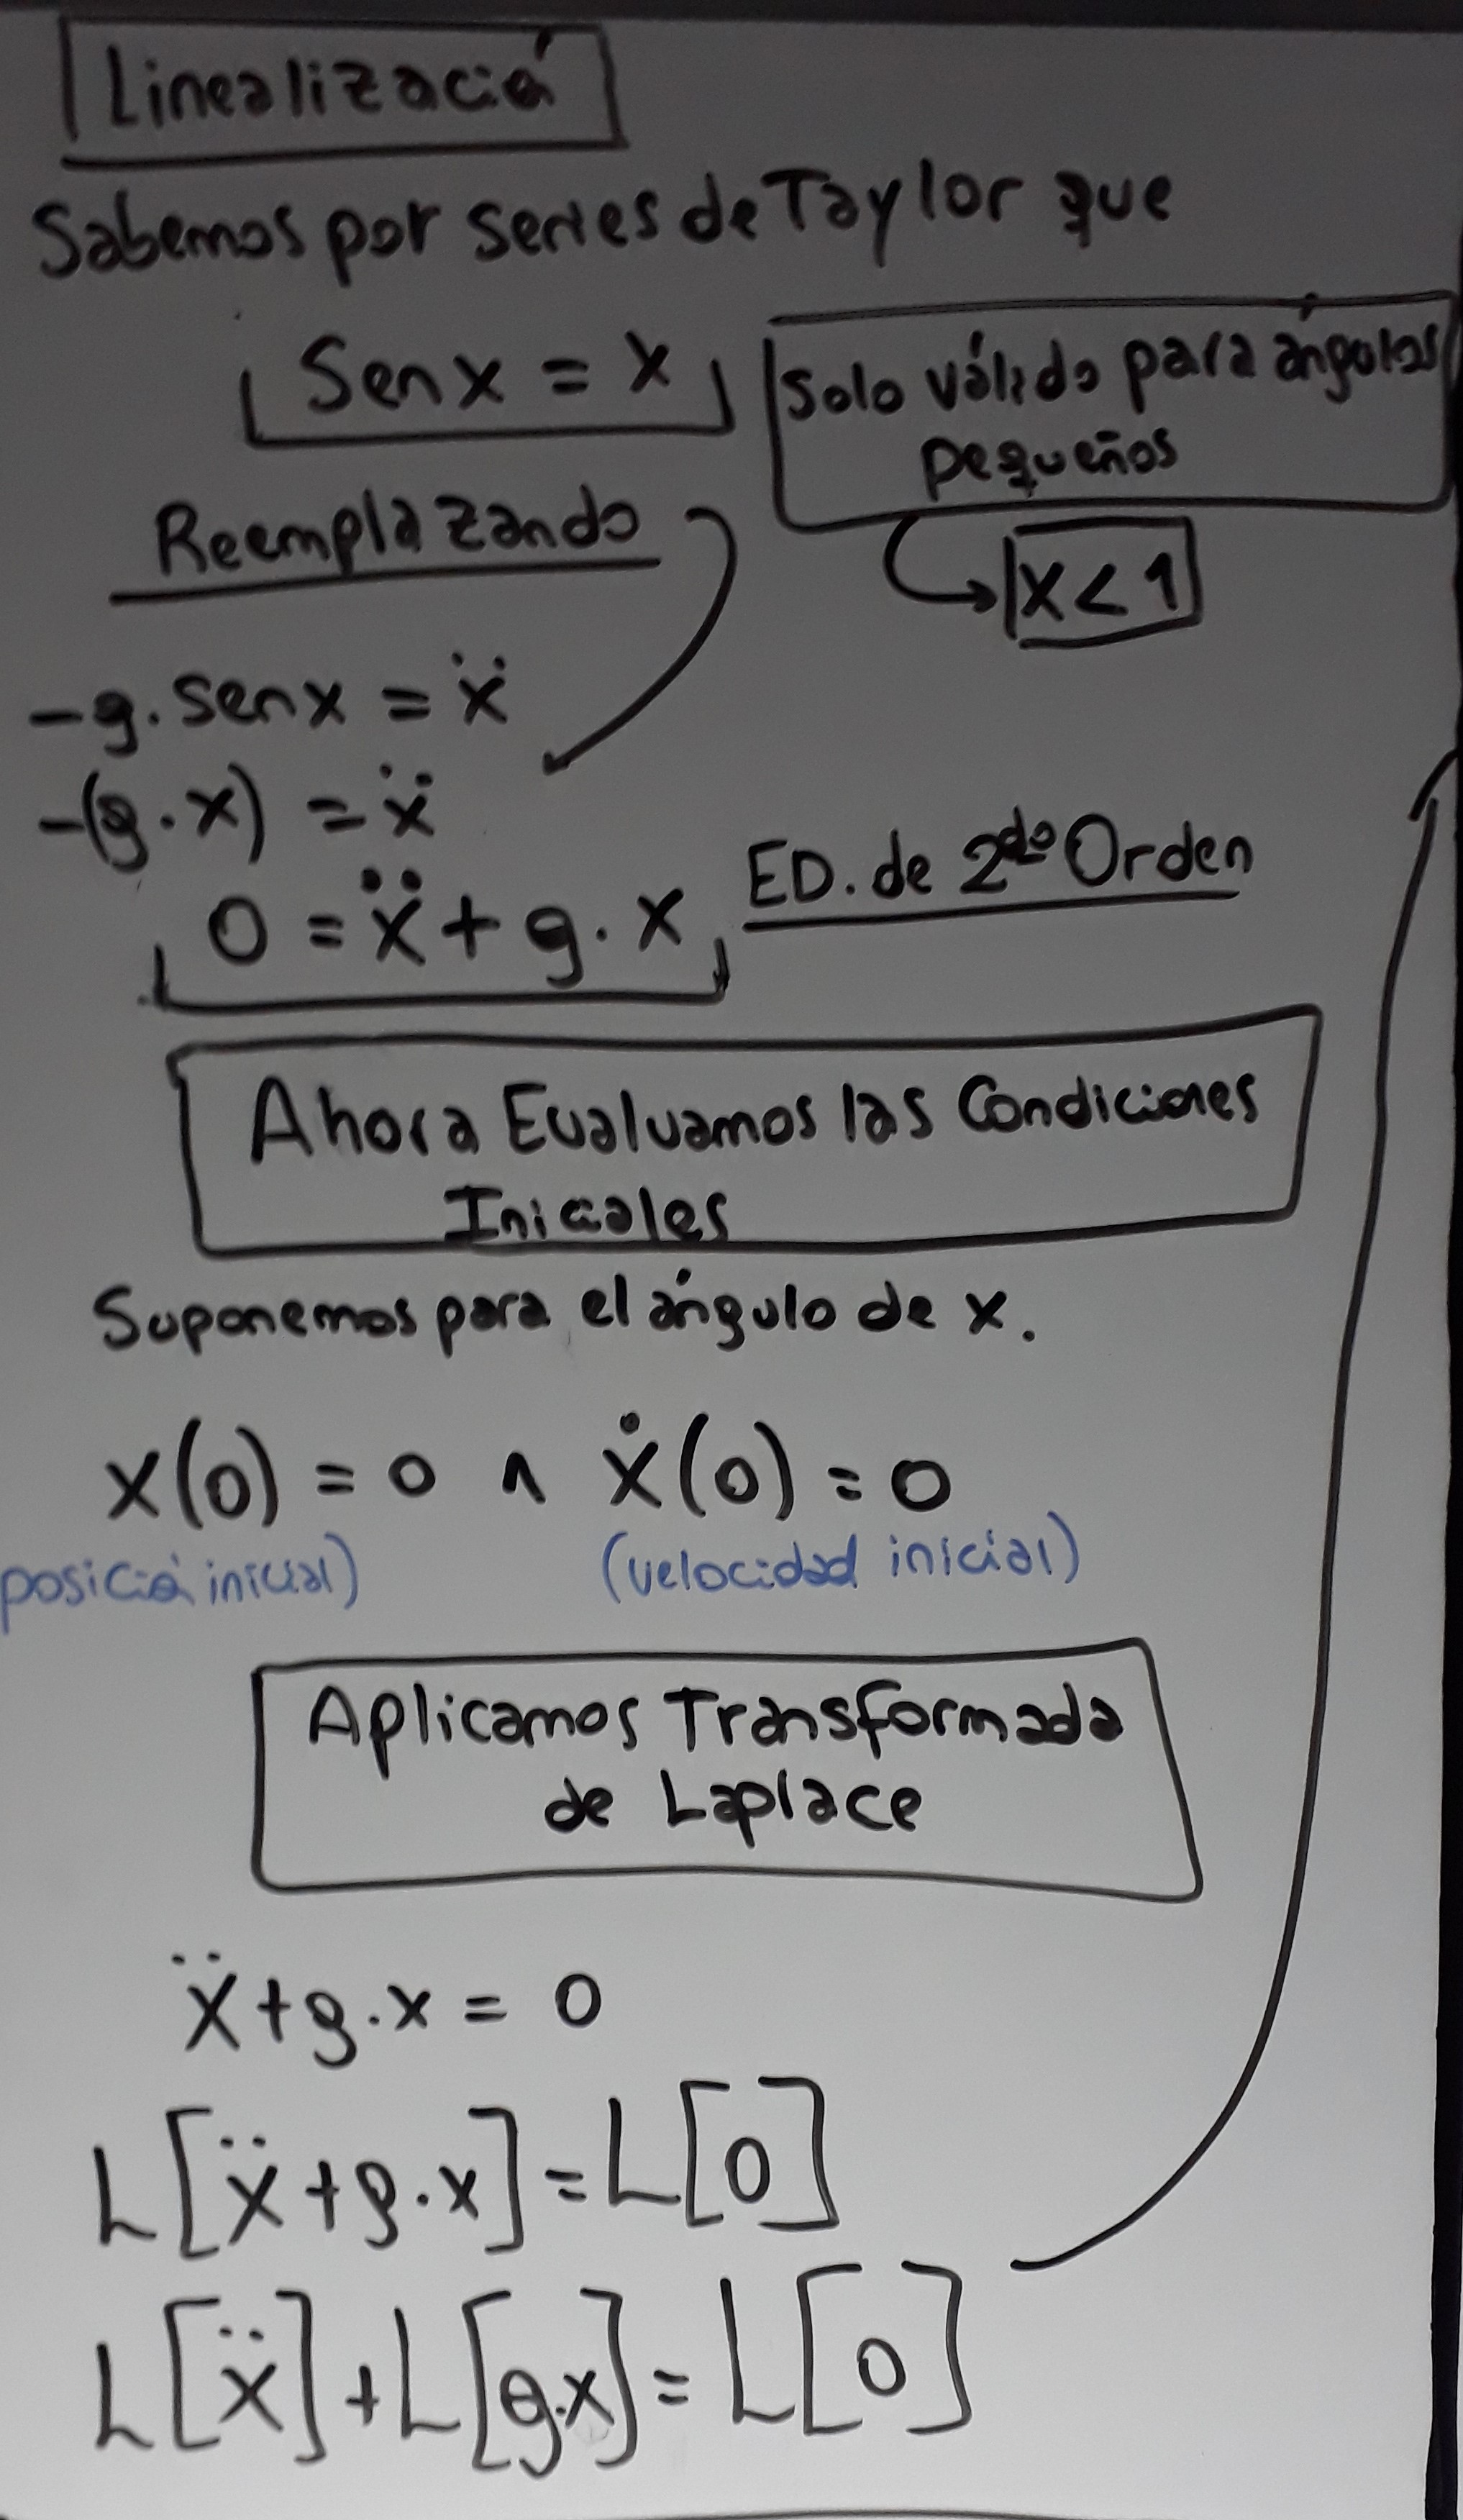 Linealizació
Sabemos por series de Taylor que
Sen x = x
Solo válido para ángulos
pequeños
x < 1
Reemplazando
-g. sen x = ẍ
-(g.x) = ẍ
0 = ẍ + g. x
ED. de 2do Orden
Ahora Evaluamos las Condiciones
Iniciales
Suponemos para el ángulo de x.
x(0) = 0 ∧ ẋ(0) = 0
posició inicial)
(velocidad inicial)
Aplicamos Transformada
de Laplace
ẍ + g.x = 0
L[ẍ + g.x] = L[0]
L[ẍ] + L[g.x] = L[0]